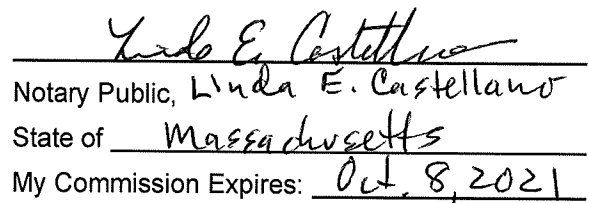 Linda E. Castellano
Notary Public, Linda E. Castellano
State of Massachusetts
My Commission Expires: Oct. 8, 2021